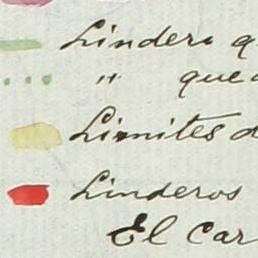 Lindero q
" que
Limites d
Linderos
El Car